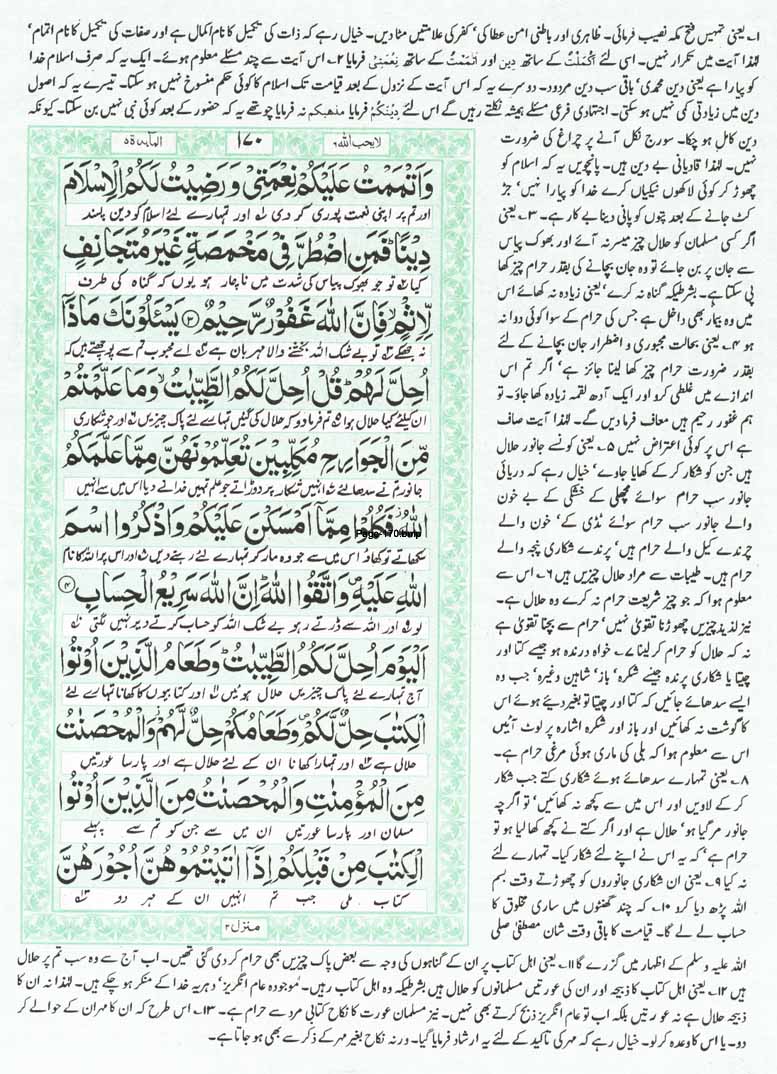 ۱۔ یعنی تمہیں فتح مکہ نصیب فرمائی۔ ظاہری اور باطنی امن عطا کی‘ کفر کی علامتیں مٹا دیں۔ خیال رہے کہ ذات کی تکمیل کا نام اکمال ہے اور صفات کی تکمیل کا نام اتمام‘
لہٰذا آیت میں تکرار نہیں۔ اسی لئے اَکْمَلْتُ کے ساتھ دین اور اَتْمَمْتُ کے ساتھ نِعْمَتِیْ فرمایا ۲۔ اس آیت سے چند مسئلے معلوم ہوئے۔ ایک یہ کہ صرف اسلام خدا
کو پیارا ہے یعنی دین محمدی‘ باقی سب دین مردود۔ دوسرے یہ کہ اس آیت کے نزول کے بعد قیامت تک اسلام کا کوئی حکم منسوخ نہیں ہو سکتا۔ تیسرے یہ کہ اصول
دین میں زیادتی کمی نہیں ہو سکتی۔ اجتہادی فرعی مسئلے ہمیشہ نکلتے رہیں گے اس لئے دِیْنُکُمْ فرمایا مذھبکم نہ فرمایا چوتھے یہ کہ حضور کے بعد کوئی نبی نہیں بن سکتا۔ کیونکہ
دین کامل ہو چکا۔ سورج نکل آنے پر چراغ کی ضرورت
نہیں۔ لہٰذا قادیانی بے دین ہیں۔ پانچویں یہ کہ اسلام کو
چھوڑ کر کوئی لاکھوں نیکیاں کرے خدا کو پیارا نہیں‘ جڑ
کٹ جانے کے بعد پتوں کو پانی دینا بے کار ہے۔ ۳۔ یعنی
اگر کسی مسلمان کو حلال چیز میسر نہ آئے اور بھوک پیاس
سے جان پر بن جائے تو وہ جان بچانے کی بقدر حرام چیز کھا
پی سکتا ہے۔ بشرطیکہ گناہ نہ کرے‘ یعنی زیادہ نہ کھائے اس
میں وہ بیمار بھی داخل ہے جس کی حرام کے سوا کوئی دوا نہ
ہو ۴۔ یعنی بحالت مجبوری و اضطرار جان بچانے کے لئے
بقدر ضرورت حرام چیز کھا لینا جائز ہے‘ اگر تم اس
اندازے میں غلطی کرو اور ایک آدھ لقمہ زیادہ کھا جاؤ۔ تو
ہم غفور رحیم ہیں معاف فرما دیں گے۔ لہٰذا آیت صاف
ہے اس پر کوئی اعتراض نہیں ۵۔ یعنی کونسے جانور حلال
ہیں جن کو شکار کر کے کھایا جاوے‘ خیال رہے کہ دریائی
جانور سب حرام سوائے مچھلی کے خشکی کے بے خون
والے جانور سب حرام سوائے ٹڈی کے‘ خون والے
چرندے کیل والے حرام ہیں‘ پرندے شکاری پنجہ والے
حرام ہیں۔ طیبات سے مراد حلال چیزیں ہیں ۶۔ اس سے
معلوم ہوا کہ جو چیز شریعت حرام نہ کرے وہ حلال ہے۔
نیز لذیذ چیزیں چھوڑنا تقویٰ نہیں‘ حرام سے بچنا تقویٰ ہے
نہ کہ حلال کو حرام کر لینا ۷۔ خواہ درندہ ہو جیسے کتا اور
چیتا یا شکاری پرندہ جیسے شکرہ‘ باز‘ شاہین وغیرہ‘ جب وہ
ایسے سدھائے جائیں کہ کتا اور چیتا تو بغیر دیئے ہوئے اس
کا گوشت نہ کھائیں اور باز اور شکرہ اشارہ پر لوٹ آئیں
اس سے معلوم ہوا کہ بلی کی ماری ہوئی مرغی حرام ہے۔
۸۔ یعنی تمہارے سدھائے ہوئے شکاری کتے جب شکار
کر کے لاویں اور اس میں سے کچھ نہ کھائیں‘ تو اگرچہ
جانور مر گیا ہو‘ حلال ہے اور اگر کتے نے کچھ کھا لیا ہو تو
حرام ہے‘ کہ یہ اس نے اپنے لئے شکار کیا۔ تمہارے لئے
نہ کیا ۹۔ یعنی ان شکاری جانوروں کو چھوڑتے وقت بسم
اللہ پڑھ دیا کرو ۱۰۔ کہ چند گھنٹوں میں ساری مخلوق کا
حساب لے لے گا۔ قیامت کا باقی وقت شان مصطفیٰ صلی
لایحب اللہ ۶
۱۷۰
المائدۃ ۵
وَاَتْمَمْتُ عَلَيْكُمْ نِعْمَتِيْ وَرَضِيْتُ لَكُمُ الْاِسْلَامَ
اور تم پر اپنی نعمت پوری کر دی اور تمہارے لئے اسلام کو دین پسند
دِيْنًا فَمَنِ اضْطُرَّ فِيْ مَخْمَصَةٍ غَيْرَ مُتَجَانِفٍ
کیا تو جو بھوک پیاس کی شدت میں ناچار ہو یوں کہ گناہ کی طرف
لِّاِثْمٍ فَاِنَّ اللّٰهَ غَفُوْرٌ رَّحِيْمٌ ۳ يَسْئَلُوْنَكَ مَاذَآ
نہ جھکے تو بے شک اللہ بخشنے والا مہربان ہے اے محبوب تم سے پوچھتے ہیں کہ
اُحِلَّ لَهُمْ قُلْ اُحِلَّ لَكُمُ الطَّيِّبٰتُ وَمَا عَلَّمْتُمْ
ان کیلئے کیا حلال ہوا تم فرما دو کہ حلال کی گئیں تمہارے لئے پاک چیزیں اور جو شکاری
مِّنَ الْجَوَارِحِ مُكَلِّبِيْنَ تُعَلِّمُوْنَهُنَّ مِمَّا عَلَّمَكُمُ
جانور تم نے سدھا لئے انہیں شکار پر دوڑاتے جو علم تمہیں خدا نے دیا اس میں سے انہیں
اللّٰهُ فَكُلُوْا مِمَّآ اَمْسَكْنَ عَلَيْكُمْ وَاذْكُرُوا اسْمَ
Page-170.bmp
سکھاتے تو کھاؤ اس میں سے جو وہ مار کر تمہارے لئے رہنے دیں اور اس پر اللہ کا نام
اللّٰهِ عَلَيْهِ وَاتَّقُوا اللّٰهَ اِنَّ اللّٰهَ سَرِيْعُ الْحِسَابِ ۴
لو اور اللہ سے ڈرتے رہو بے شک اللہ کو حساب کرتے دیر نہیں لگتی
اَلْيَوْمَ اُحِلَّ لَكُمُ الطَّيِّبٰتُ وَطَعَامُ الَّذِيْنَ اُوْتُوا
آج تمہارے لئے پاک چیزیں حلال ہوئیں اور کتابیوں کا کھانا تمہارے لئے
الْكِتٰبَ حِلٌّ لَّكُمْ وَطَعَامُكُمْ حِلٌّ لَّهُمْ وَالْمُحْصَنٰتُ
حلال ہے اور تمہارا کھانا ان کے لئے حلال ہے اور پارسا عورتیں
مِنَ الْمُؤْمِنٰتِ وَالْمُحْصَنٰتُ مِنَ الَّذِيْنَ اُوْتُوا
مسلمان اور پارسا عورتیں ان میں سے جن کو تم سے پہلے
الْكِتٰبَ مِنْ قَبْلِكُمْ اِذَآ اٰتَيْتُمُوْهُنَّ اُجُوْرَهُنَّ
کتاب ملی جب تم انہیں ان کے مہر دو
منزل ۲
اللہ علیہ وسلم کے اظہار میں گزرے گا ۱۱۔ یعنی اہل کتاب پر ان کے گناہوں کی وجہ سے بعض پاک چیزیں بھی حرام کر دی گئی تھیں۔ اب آج سے وہ سب تم پر حلال
ہیں ۱۲۔ یعنی اہل کتاب کا ذبیحہ اور ان کی عورتیں مسلمانوں کو حلال ہیں بشرطیکہ وہ اہل کتاب رہیں۔ موجودہ عام انگریز‘ دہریہ خدا کے منکر ہو چکے ہیں۔ لہٰذا نہ ان کا
ذبیحہ حلال ہے نہ عورتیں بلکہ اب تو عام انگریز ذبح کرتے بھی نہیں۔ نیز مسلمان عورت کا نکاح کتابی مرد سے حرام ہے۔ ۱۳۔ اس طرح کہ ان کا مہر ان کے حوالے کر
دو۔ یا اس کا وعدہ کر لو۔ خیال رہے کہ مہر کی تاکید کے لئے یہ ارشاد فرمایا گیا۔ ورنہ نکاح بغیر مہر کے ذکر سے بھی ہو جاتا ہے۔